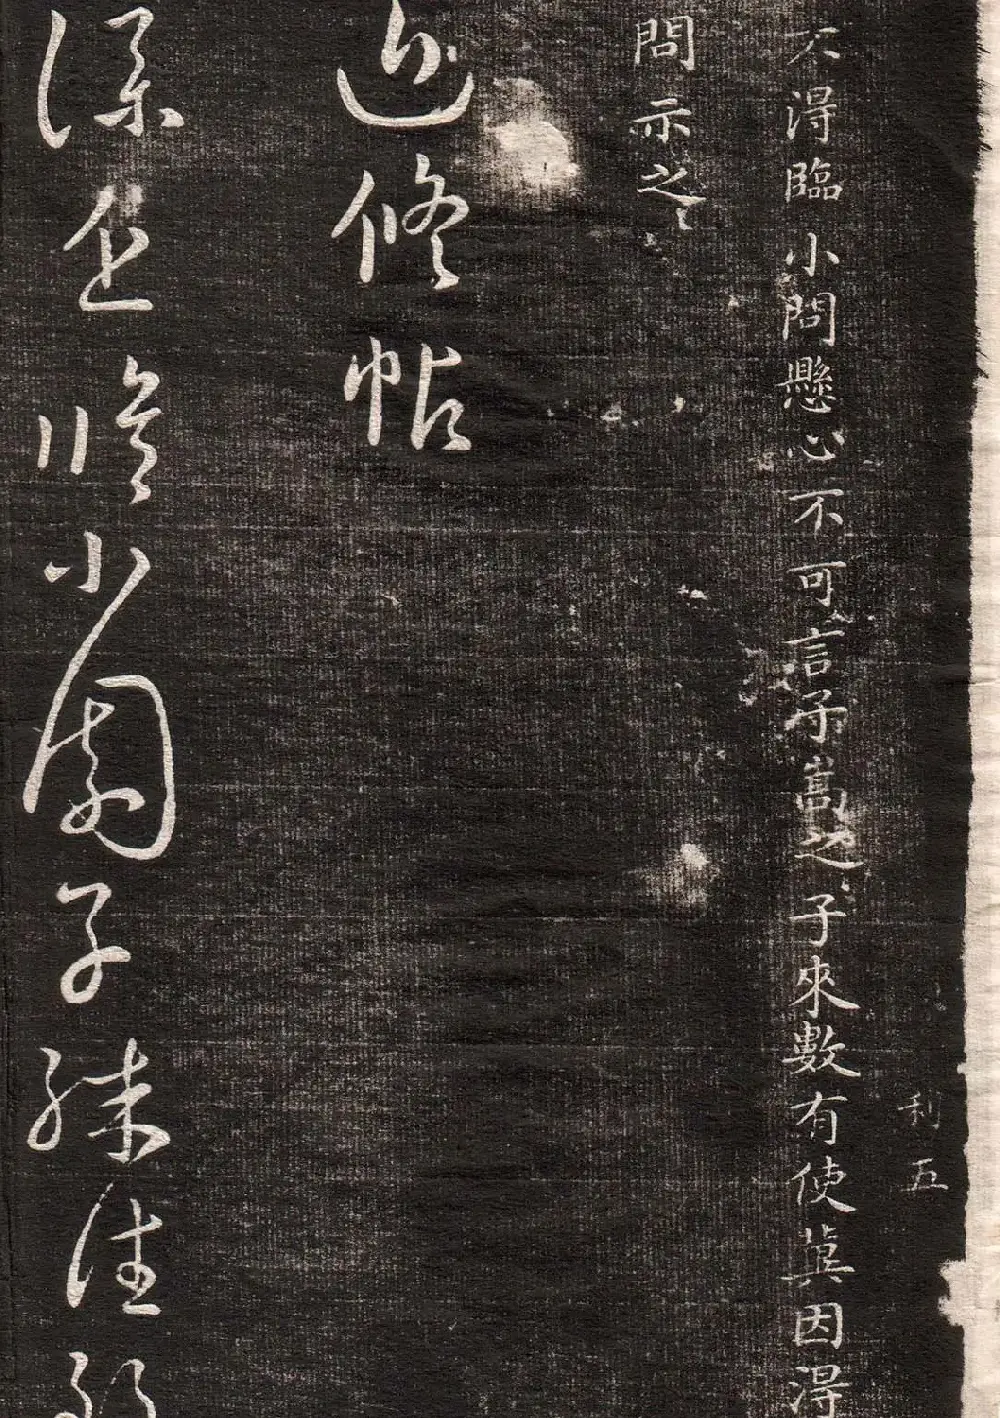 利五
不得臨小問懸心不可言子嵩之子來數有使冀因得
問示之
近修帖
近修小園子殊佳